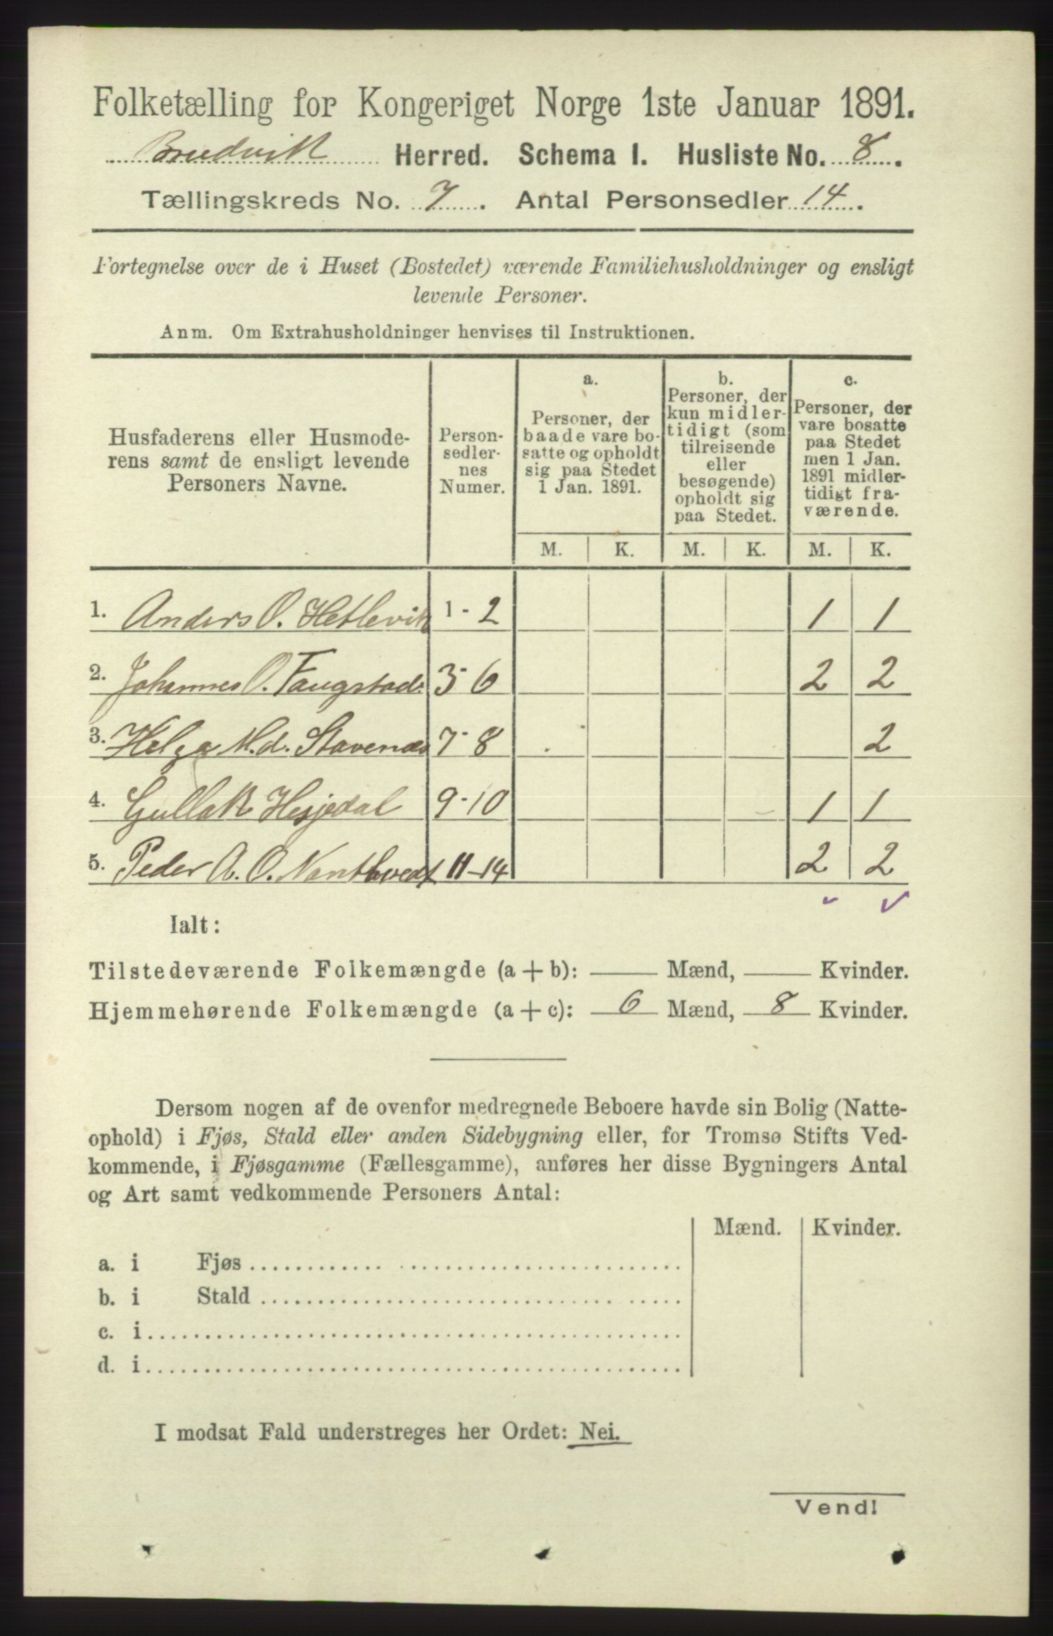 Folketælling for Kongeriget Norge 1ste Januar 1891.
Bruvik Herred. Schema I. Husliste No. 8.
Tællingskreds No. 7. Antal Personsedler 14.
Fortegnelse over de i Huset (Bostedet) værende Familiehusholdninger og ensligt
levende Personer.
Anm. Om Extrahusholdninger henvises til Instruktionen.
Husfaderens eller Husmode-
rens samt de ensligt levende
Personers Navne.
Person-
sedler-
nes
Numer.
a.
Personer, der
baade vare bo-
satte og opholdt
sig paa Stedet
1 Jan. 1891.
b.
Personer, der
kun midler-
tidigt (som
tilreisende
eller
besøgende)
opholdt sig
paa Stedet.
c.
Personer, der
vare bosatte
paa Stedet
men 1 Jan.
1891 midler-
tidigt fra-
værende.
M. K. M. K. M. K.
1. Anders O. Hetlevik 1-2 1 1
2. Johannes O. Faugstad 3-6 2 2
3. Helga M.d. Stavenæs 7-8 2
4. Gullak Hesjedal 9-10 1 1
5. Peder A. O. 11-14 2 2
Ialt:
Tilstedeværende Folkemængde (a + b): — Mænd, — Kvinder.
Hjemmehørende Folkemængde (a + c): 6 Mænd, 8 Kvinder.
Dersom nogen af de ovenfor medregnede Beboere havde sin Bolig (Natte-
ophold) i Fjøs, Stald eller anden Sidebygning eller, for Tromsø Stifts Ved-
kommende, i Fjøsgamme (Fællesgamme), anføres her disse Bygningers Antal
og Art samt vedkommende Personers Antal:
Mænd. Kvinder.
a. i Fjøs
b. i Stald
c. i
d. i
I modsat Fald understreges her Ordet: Nei.
Vend!